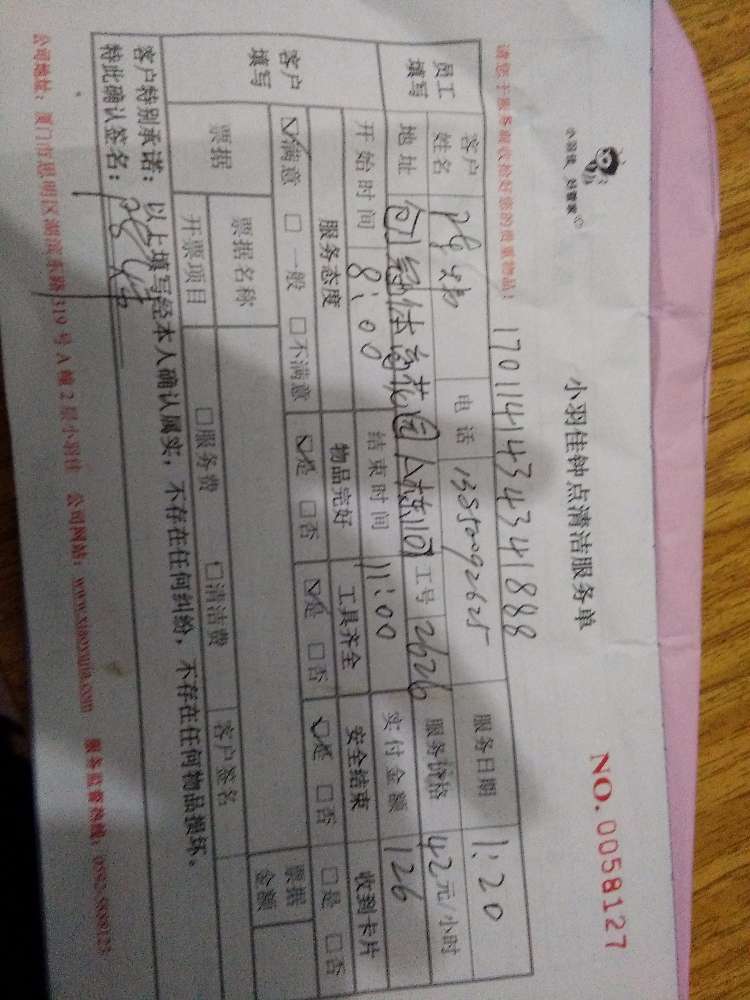 小羽佳 好管家
小羽佳钟点清洁服务单
NO. 0058127
请您于服务前收拾好您的贵重物品！
1701141434341888
员工填写 客户姓名 电话 13850092625 服务日期 1:20
地址 创冠体育花园 工号 2626 服务价格 42元/小时
开始时间 8:00 结束时间 11:00 实付金额 126
客户填写 服务态度 物品完好 工具齐全 安全结束 收到卡片
☑满意 □一般 □不满意 ☑是 □否 ☑是 □否 ☑是 □否 □是 □否
票据 票据名称 客户签名 票据金额
开票项目 □服务费 □清洁费
客户特别承诺：以上填写经本人确认属实，不存在任何纠纷，不存在任何物品损坏。
特此确认签名：
公司地址：厦门市思明区湖滨东路319号A幢2层小羽佳 公司网站：www.xiaoyujia.com 服务监督热线：